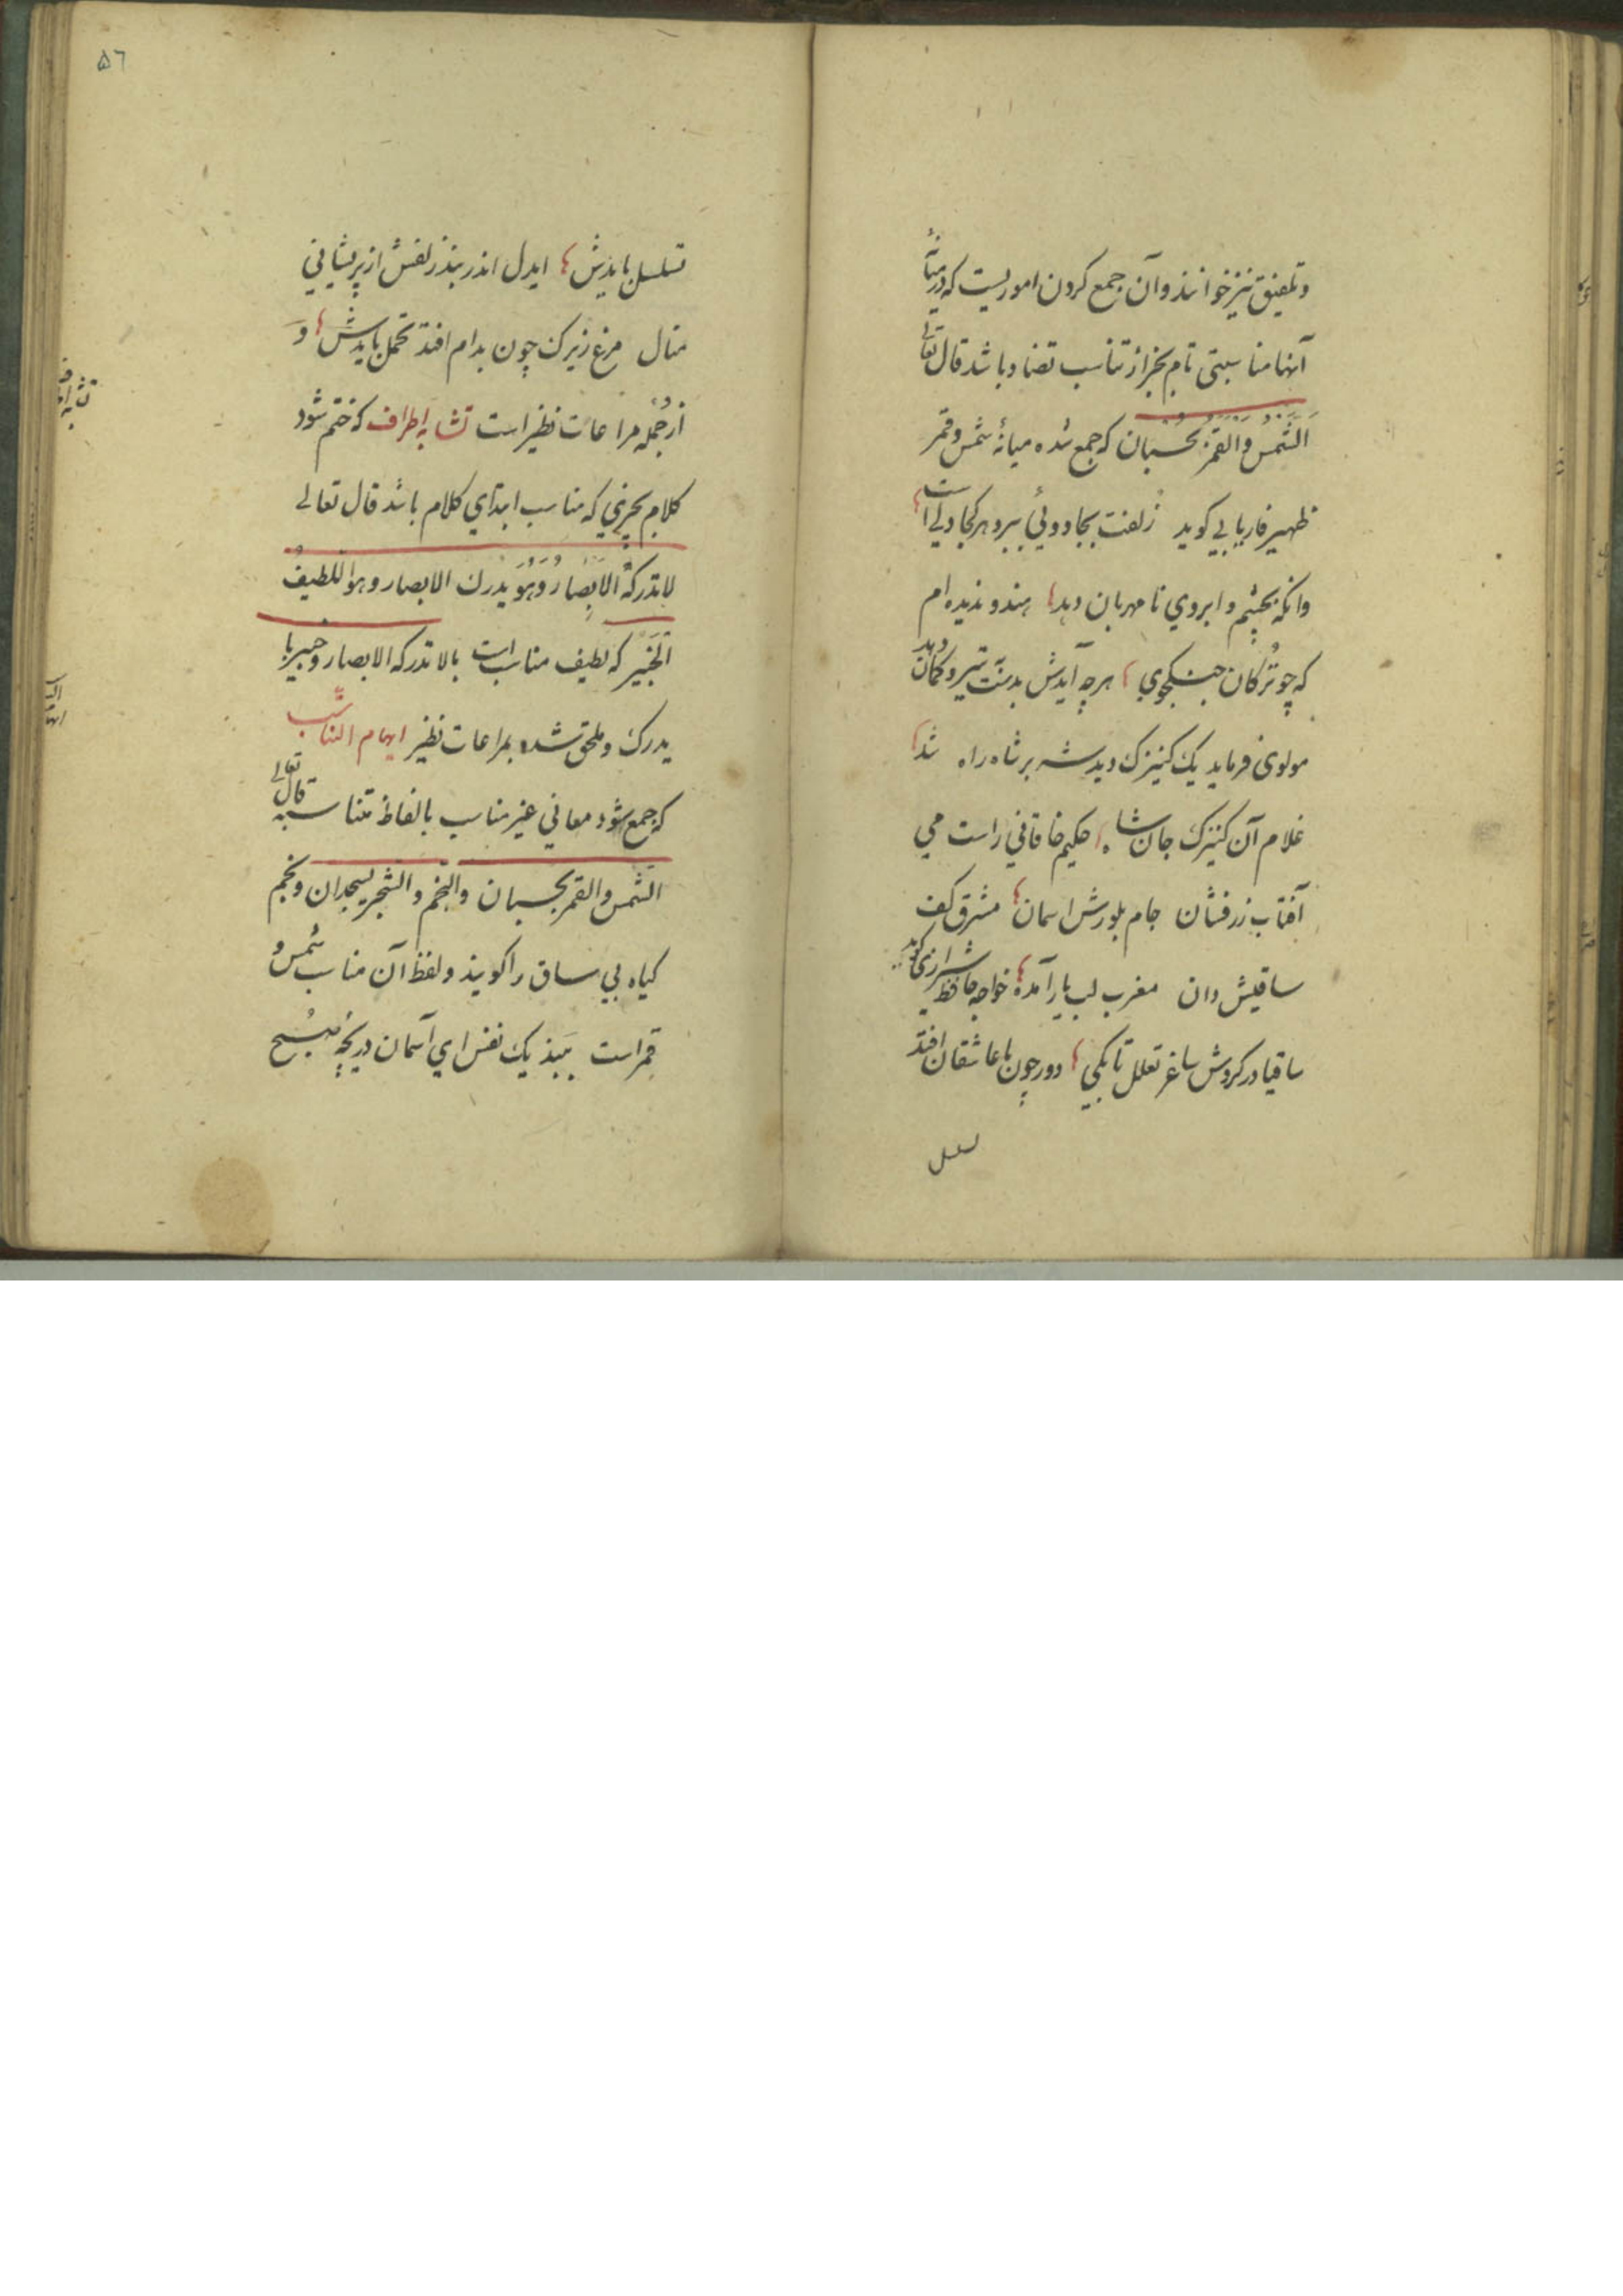 و تلفیق نیز خوانند و آن جمع کردن اموریست که در میانهٔ
آنها مناسبتی تام بجز از تناسب تضاد باشد قال تعالی
الشَّمْسُ وَالقَمَرُ بِحُسْبَان که جمع شده میانهٔ شمس و قمر
ظهیر فاریابی کوید زلفت بجادوئی ببرد هر کجا دلی است
وانکه بچشم و ابروي نا مهربان دهد هندو ندیده ام
که چو ترکان جنکجوي هر چه آیدش بدست تیر و کمان دهد
مولوی فرماید یک کنیزک دید شه بر شاه راه شد
غلام آن کنیزک جان شاه حکیم خاقانی راست می
آفتاب زرفشان جام بلورش اسمان مشرق کف
ساقیش دان مغرب لب یار آمده خواجه حافظ شیرازی کوید
ساقیا در کردش ساغر تعلل تا بکی دور چون با عاشقان افتد
تسلسل
۵٦
تسلسل بایدش ایدل اندر بند زلفش از پریشانی
منال مرغ زیرک چون بدام افتد تحمل بایدش وَ
از جُمله مراعات نظیر است تشابه اطراف که ختم شود
کلام بچیزي که مناسب ابتداي کلام باشد قال تعالی
لا تدرکهُ الاَبصارُ وَهُوَ یدرک الابصار و هو اللطیفُ
الخَبیر که لطیف مناسب است با لا تدرکه الابصار و خبیر با
یدرک و ملحق شده بمراعات نظیر ایهام التناسب
که جمع شود معانی غیر مناسب بالفاظ متناسبه قال تعالی
الشمس والقمر بحسبان والنجم والشجر یسجدان و نجم
کیاه بي ساق را کویند و لفظ آن مناسب شمس و
قمر است ببند یک نفس اي آسمان دریچهٔ صبح